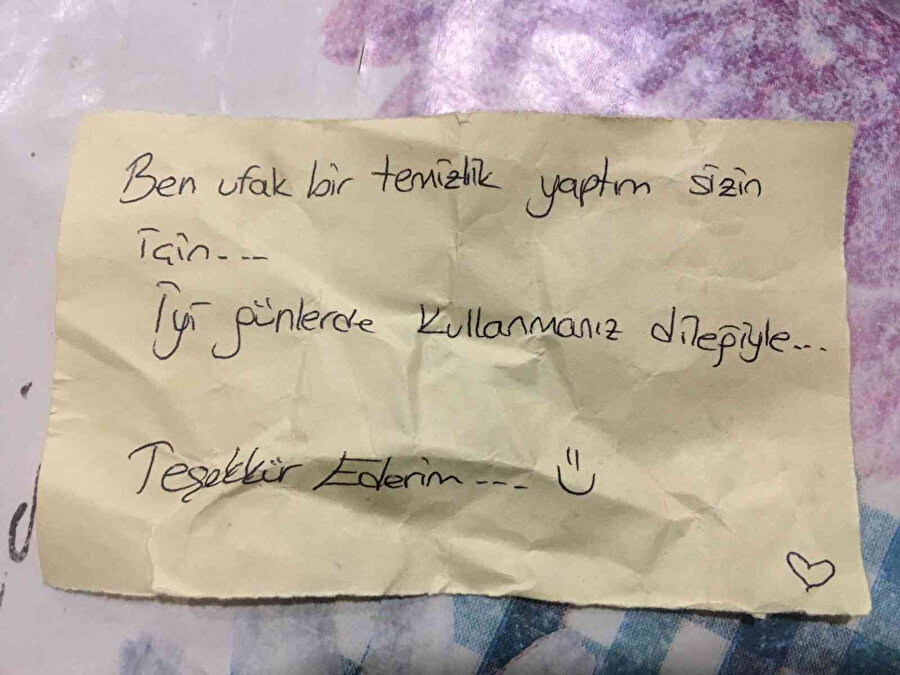 Ben ufak bir temizlik yaptım sizin
için...
İyi günlerde kullanmanız dileğiyle...
Teşekkür Ederim....